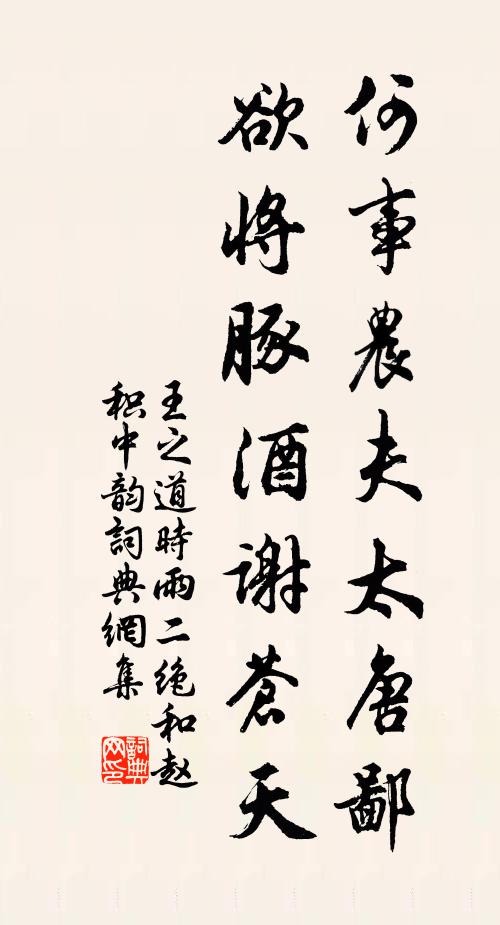 何事農夫太唐鄙
欲將豚酒謝蒼天
王之道時雨二绝和赵
积中韵詞典網集
詞典
网印